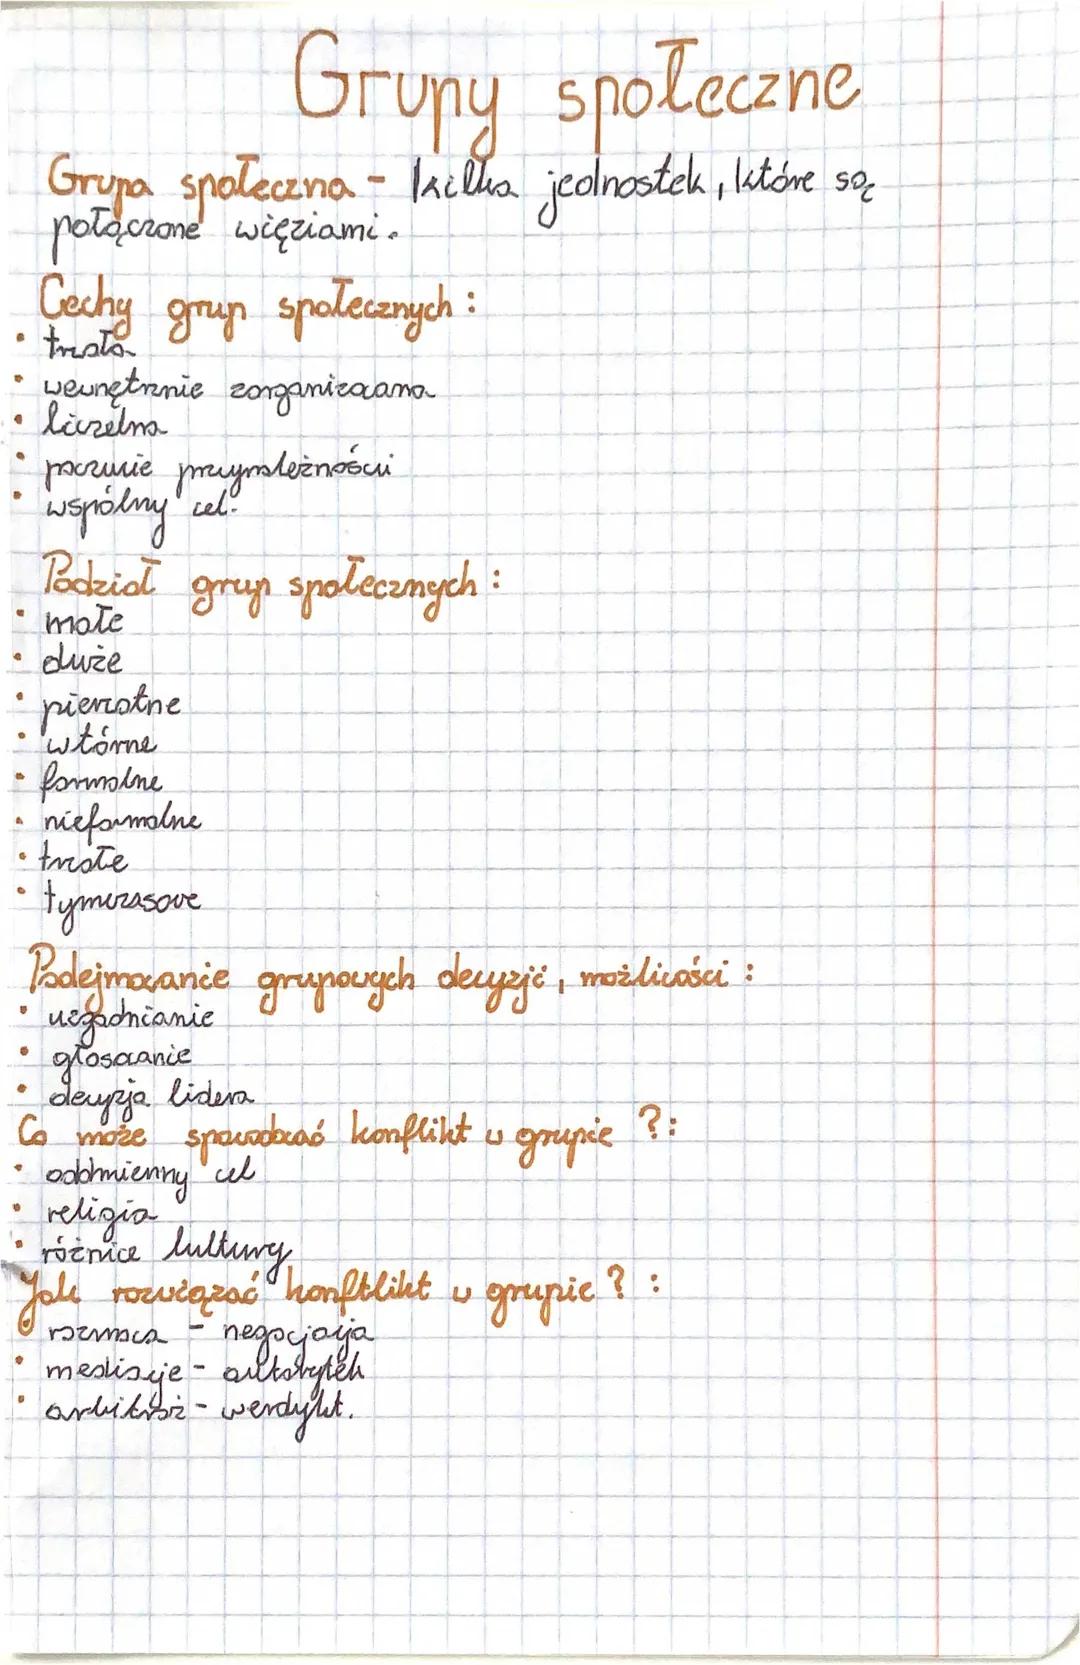 Grupy społeczne
Grupa społeczna - kilka jednostek, które są
połączone więziami.
Cechy grup społecznych:
• trwała
• wewnętrznie zorganizowana
• liczebna
• poczucie przynależności
• wspólny cel.
Podział grup społecznych:
• małe
• duże
• pierwotne
• wtórne
• formalne
• nieformalne
• trwałe
• tymczasowe
Podejmowanie grupowych decyzji, możliwości:
• uzgadnianie
• głosowanie
• decyzja lidera
Co może spowodować konflikt w grupie?:
• odmienny cel
• religia
• różnice kultury
Jak rozwiązać konftlikt w grupie? :
• rozmowa - negocjacja
• mediacje - autorytek
• arbitraż - werdykt.